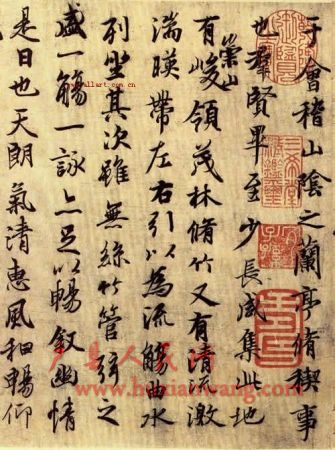 于會稽山陰之蘭亭脩稧事
也羣賢畢至少長咸集此地
有崇山峻領茂林脩竹又有清流激
湍暎帶左右引以為流觴曲水
列坐其次雖無絲竹管弦之
盛一觴一詠亦足以暢叙幽情
是日也天朗氣清惠風和暢仰
三希堂精鑑璽
宜子孫
huxianwang.com